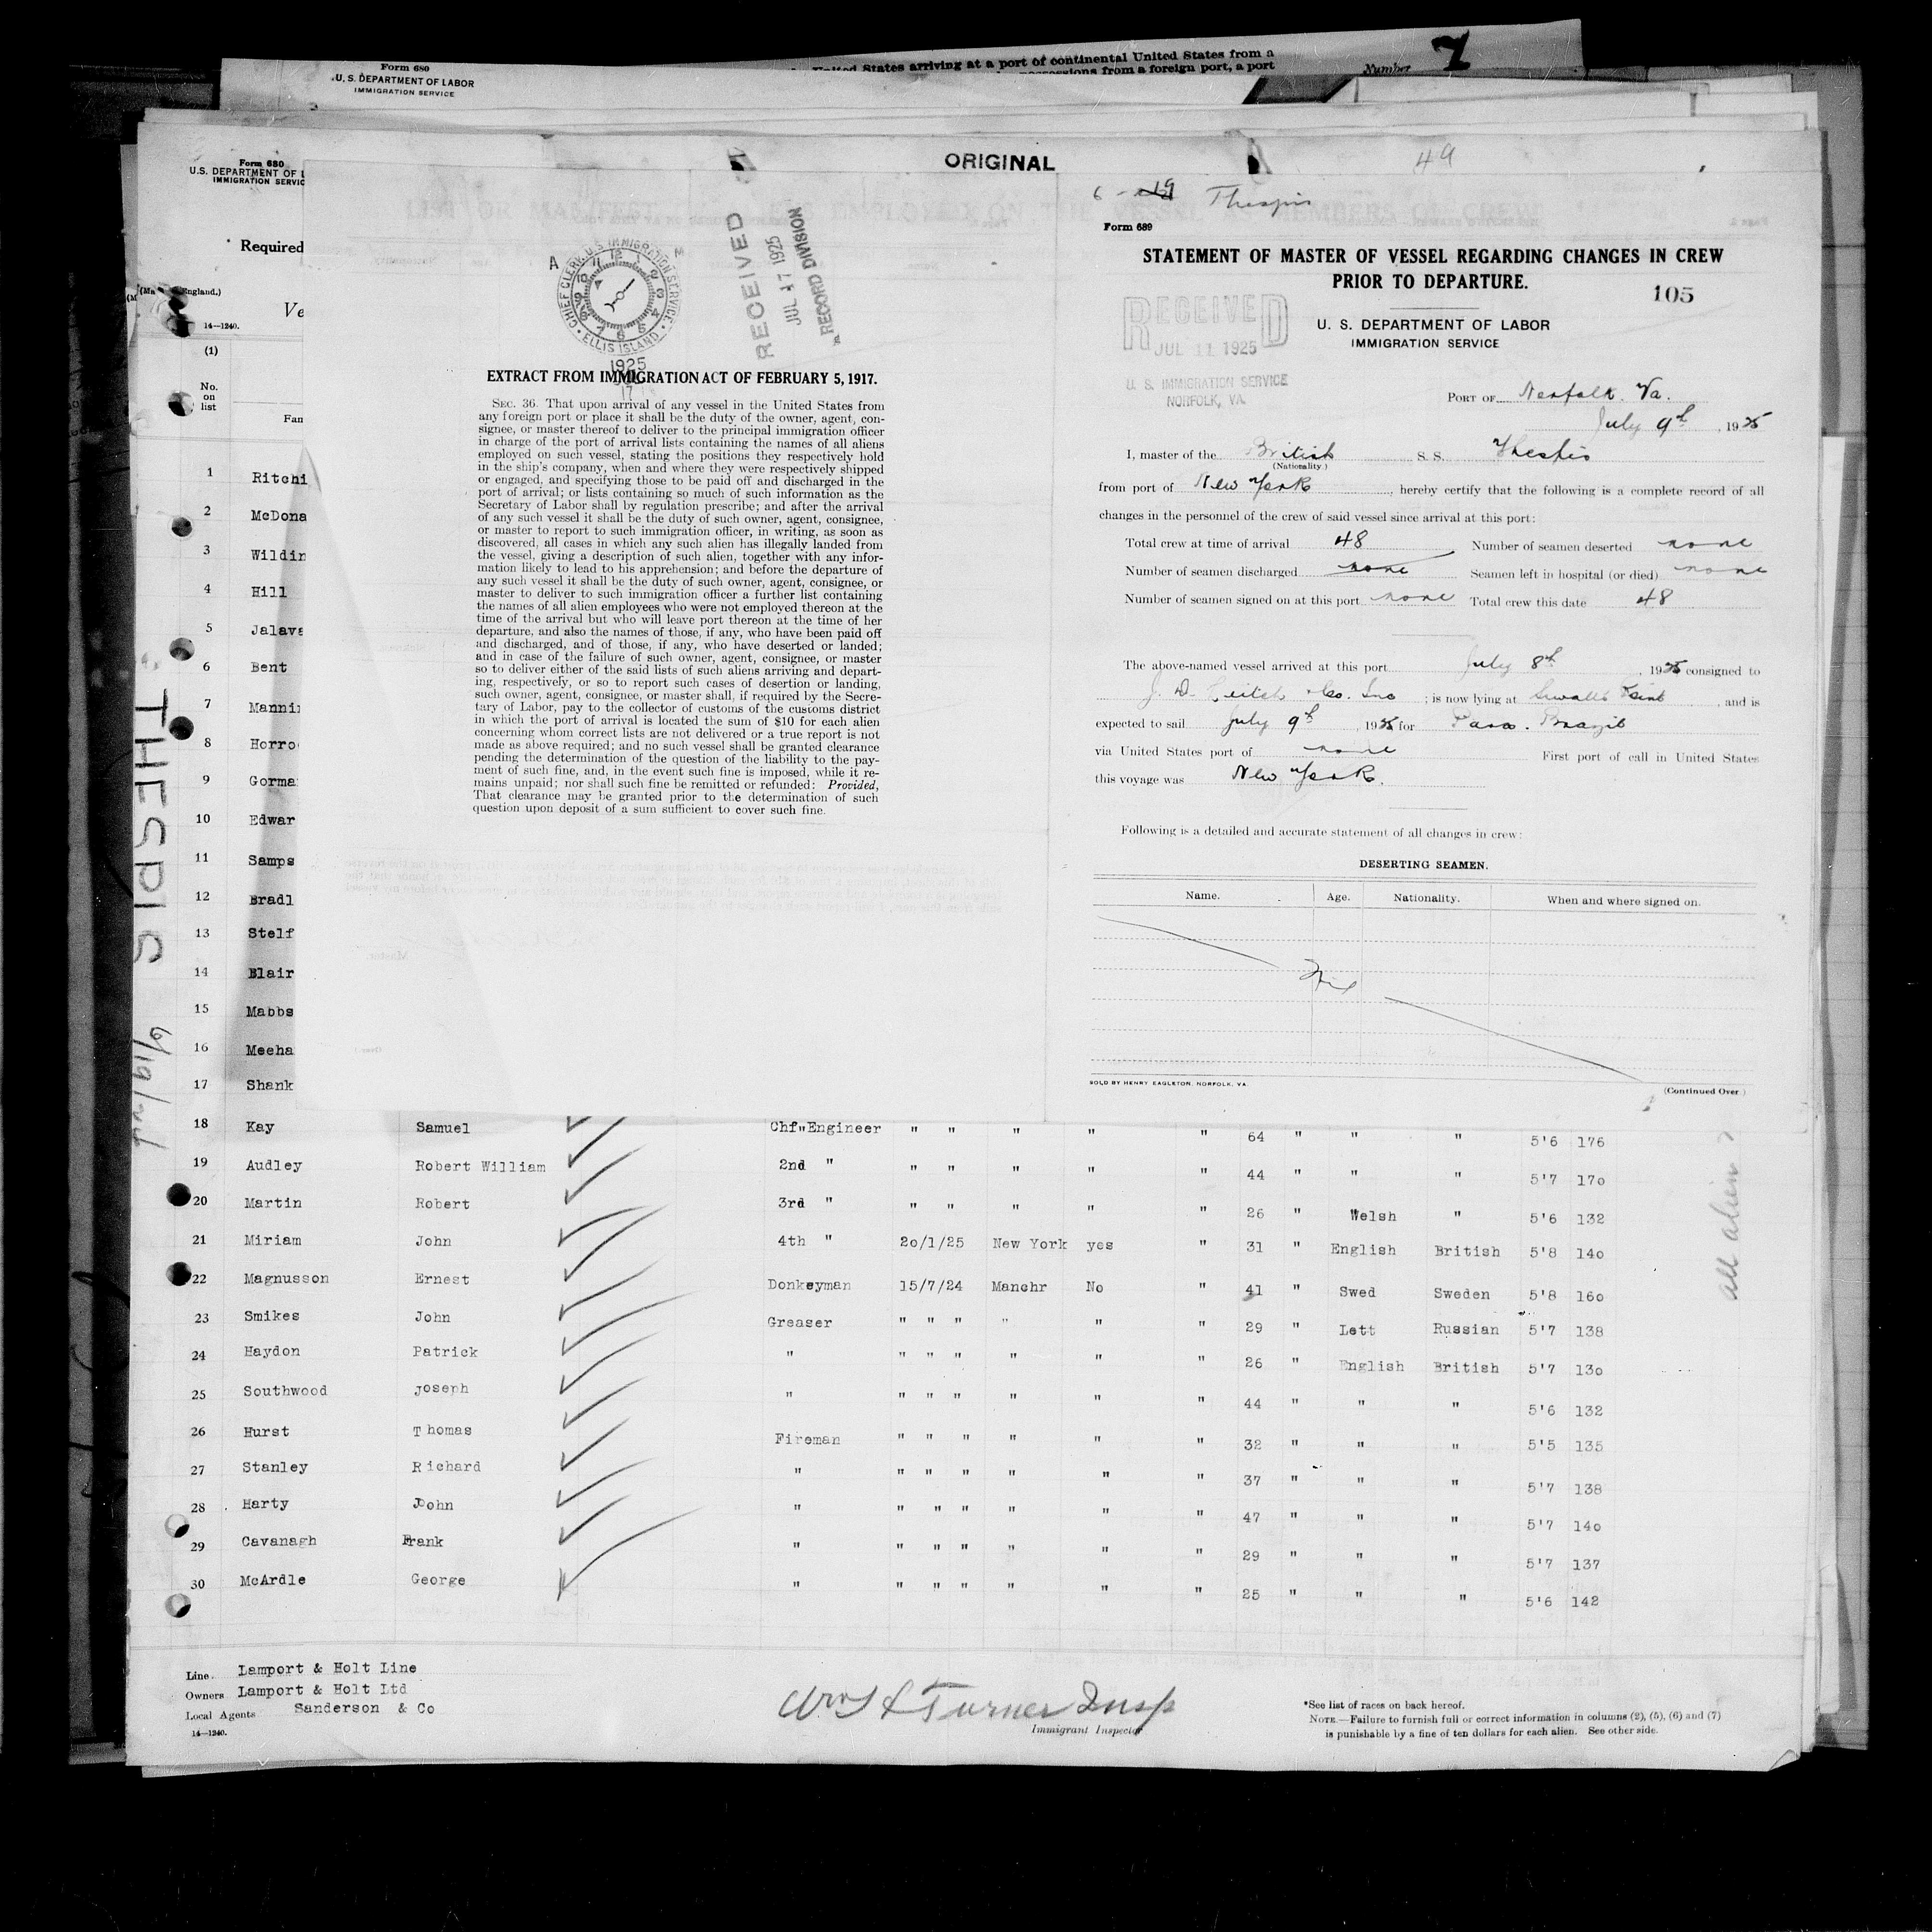 Form 680
U. S. DEPARTMENT OF LABOR
IMMIGRATION SERVICE
United States arriving at a port of continental United States from a
possessions from a foreign port, a port
Number 7
Form 680
U.S. DEPARTMENT OF L
IMMIGRATION SERVIC
ORIGINAL
49
Required
England.)
Ve
14—1240.
(1)
No.
on
list
Fan
CHIEF CLERK, U.S. IMMIGRATION SERVICE
ELLIS ISLAND
1925
17
RECEIVED
JUL 17 1925
RECORD DIVISION
EXTRACT FROM IMMIGRATION ACT OF FEBRUARY 5, 1917.
SEC. 36. That upon arrival of any vessel in the United States from
any foreign port or place it shall be the duty of the owner, agent, con-
signee, or master thereof to deliver to the principal immigration officer
in charge of the port of arrival lists containing the names of all aliens
employed on such vessel, stating the positions they respectively hold
in the ship's company, when and where they were respectively shipped
or engaged, and specifying those to be paid off and discharged in the
port of arrival; or lists containing so much of such information as the
Secretary of Labor shall by regulation prescribe; and after the arrival
of any such vessel it shall be the duty of such owner, agent, consignee,
or master to report to such immigration officer, in writing, as soon as
discovered, all cases in which any such alien has illegally landed from
the vessel, giving a description of such alien, together with any infor-
mation likely to lead to his apprehension; and before the departure of
any such vessel it shall be the duty of such owner, agent, consignee, or
master to deliver to such immigration officer a further list containing
the names of all alien employees who were not employed thereon at the
time of the arrival but who will leave port thereon at the time of her
departure, and also the names of those, if any, who have been paid off
and discharged, and of those, if any, who have deserted or landed;
and in case of the failure of such owner, agent, consignee, or master
so to deliver either of the said lists of such aliens arriving and depart-
ing, respectively, or so to report such cases of desertion or landing,
such owner, agent, consignee, or master shall, if required by the Secre-
tary of Labor, pay to the collector of customs of the customs district
in which the port of arrival is located the sum of $10 for each alien
concerning whom correct lists are not delivered or a true report is not
made as above required; and no such vessel shall be granted clearance
pending the determination of the question of the liability to the pay-
ment of such fine, and, in the event such fine is imposed, while it re-
mains unpaid; nor shall such fine be remitted or refunded: Provided,
That clearance may be granted prior to the determination of such
question upon deposit of a sum sufficient to cover such fine.
6 - 19 Thespis
Form 689
STATEMENT OF MASTER OF VESSEL REGARDING CHANGES IN CREW
PRIOR TO DEPARTURE.
105
U. S. DEPARTMENT OF LABOR
IMMIGRATION SERVICE
RECEIVED
JUL 11 1925
U. S. IMMIGRATION SERVICE
NORFOLK, VA.
PORT OF Norfolk. Va.
July 9th, 1925
I, master of the British S. S. Thespis
(Nationality)
from port of New York, hereby certify that the following is a complete record of all
changes in the personnel of the crew of said vessel since arrival at this port:
Total crew at time of arrival 48 Number of seamen deserted none
Number of seamen discharged none Seamen left in hospital (or died) none
Number of seamen signed on at this port none Total crew this date 48
The above-named vessel arrived at this port July 8th, 1925 consigned to
J. D. Leitch & Co. Inc; is now lying at Sewalls Point, and is
expected to sail July 9th, 1925 for Para. Brazil
via United States port of none First port of call in United States
this voyage was New York.
Following is a detailed and accurate statement of all changes in crew:
DESERTING SEAMEN.
Name. Age. Nationality. When and where signed on.
Nil
SOLD BY HENRY EAGLETON, NORFOLK, VA.
(Continued Over)
THESPIS 6/19/25
1 Ritchi
2 McDona
3 Wildin
4 Hill
5 Jalava
6 Bent
7 Mannin
8 Horro
9 Gorma
10 Edwar
11 Samps
12 Bradl
13 Stelf
14 Blair
15 Mabbs
16 Meeha
17 Shank
18 Kay Samuel Chf"Engineer " " " " " 64 " " " 5'6 176
19 Audley Robert William 2nd " " " " " " 44 " " " 5'7 170
20 Martin Robert 3rd " " " " " " 26 " Welsh " 5'6 132
21 Miriam John 4th " 20/1/25 New York yes " 31 " English British 5'8 140
22 Magnusson Ernest Donkeyman 15/7/24 Manchr No " 41 " Swed Sweden 5'8 160
23 Smikes John Greaser " " " " " " 29 " Lett Russian 5'7 138
24 Haydon Patrick " " " " " " " 26 " English British 5'7 130
25 Southwood Joseph " " " " " " " 44 " " " 5'6 132
26 Hurst Thomas Fireman " " " " " " 32 " " " 5'5 135
27 Stanley Richard " " " " " " " 37 " " " 5'7 138
28 Harty John " " " " " " " 47 " " " 5'7 140
29 Cavanagh Frank " " " " " " " 29 " " " 5'7 137
30 McArdle George " " " " " " " 25 " " " 5'6 142
all alien
Line. Lamport & Holt Line
Owners Lamport & Holt Ltd
Local Agents Sanderson & Co
14—1240.
Turner Insp
Immigrant Inspector
*See list of races on back hereof.
NOTE.—Failure to furnish full or correct information in columns (2), (5), (6) and (7)
is punishable by a fine of ten dollars for each alien. See other side.